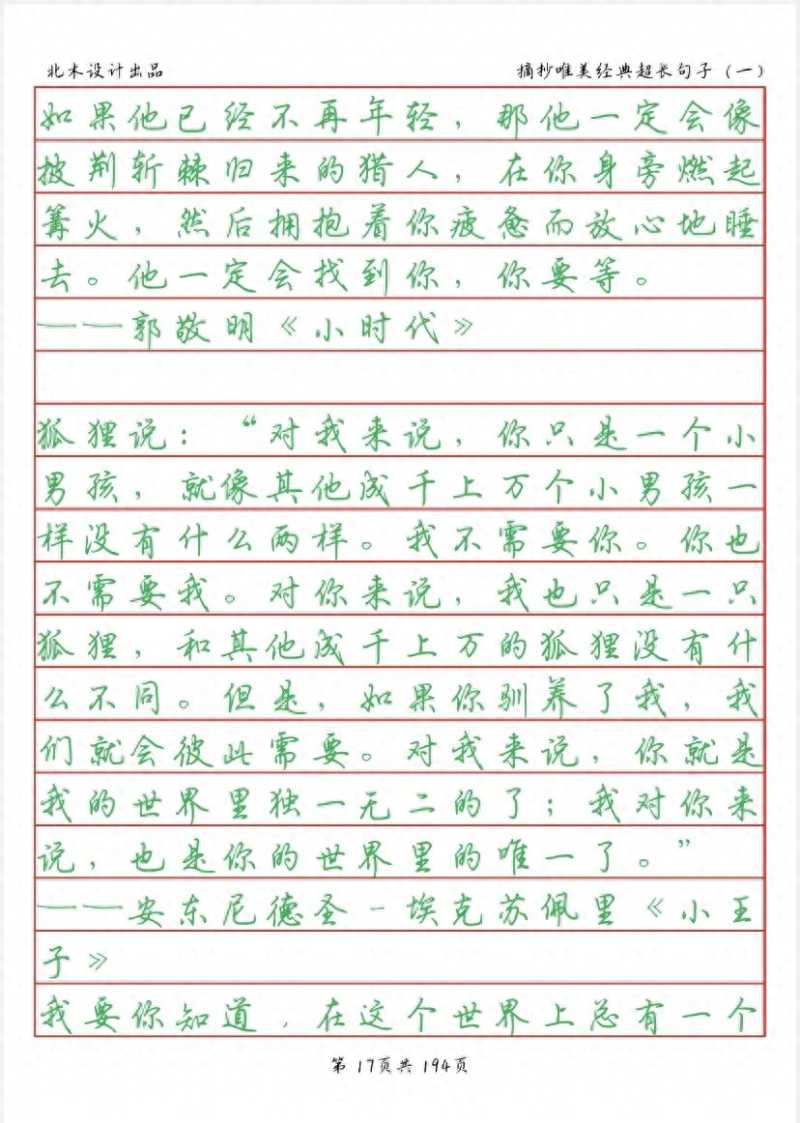 北木设计出品
摘抄唯美经典超长句子（一）
如果他已经不再年轻，那他一定会像
披荆斩棘归来的猎人，在你身旁燃起
篝火，然后拥抱着你疲惫而放心地睡
去。他一定会找到你，你要等。
——郭敬明《小时代》
狐狸说：“对我来说，你只是一个小
男孩，就像其他成千上万个小男孩一
样没有什么两样。我不需要你。你也
不需要我。对你来说，我也只是一只
狐狸，和其他成千上万的狐狸没有什
么不同。但是，如果你驯养了我，我
们就会彼此需要。对我来说，你就是
我的世界里独一无二的了；我对你来
说，也是你的世界里的唯一了。”
——安东尼德圣-埃克苏佩里《小王
子》
我要你知道，在这个世界上总有一个
第 17页共 194页